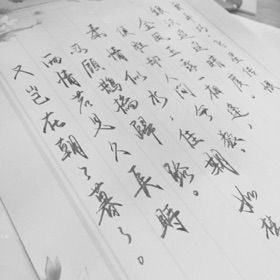 金风玉露一相逢，便
胜却人间无数。
柔情似水，佳期如梦
忍顾鹊橋歸路。
两情若是久長時
又岂在朝々暮々。